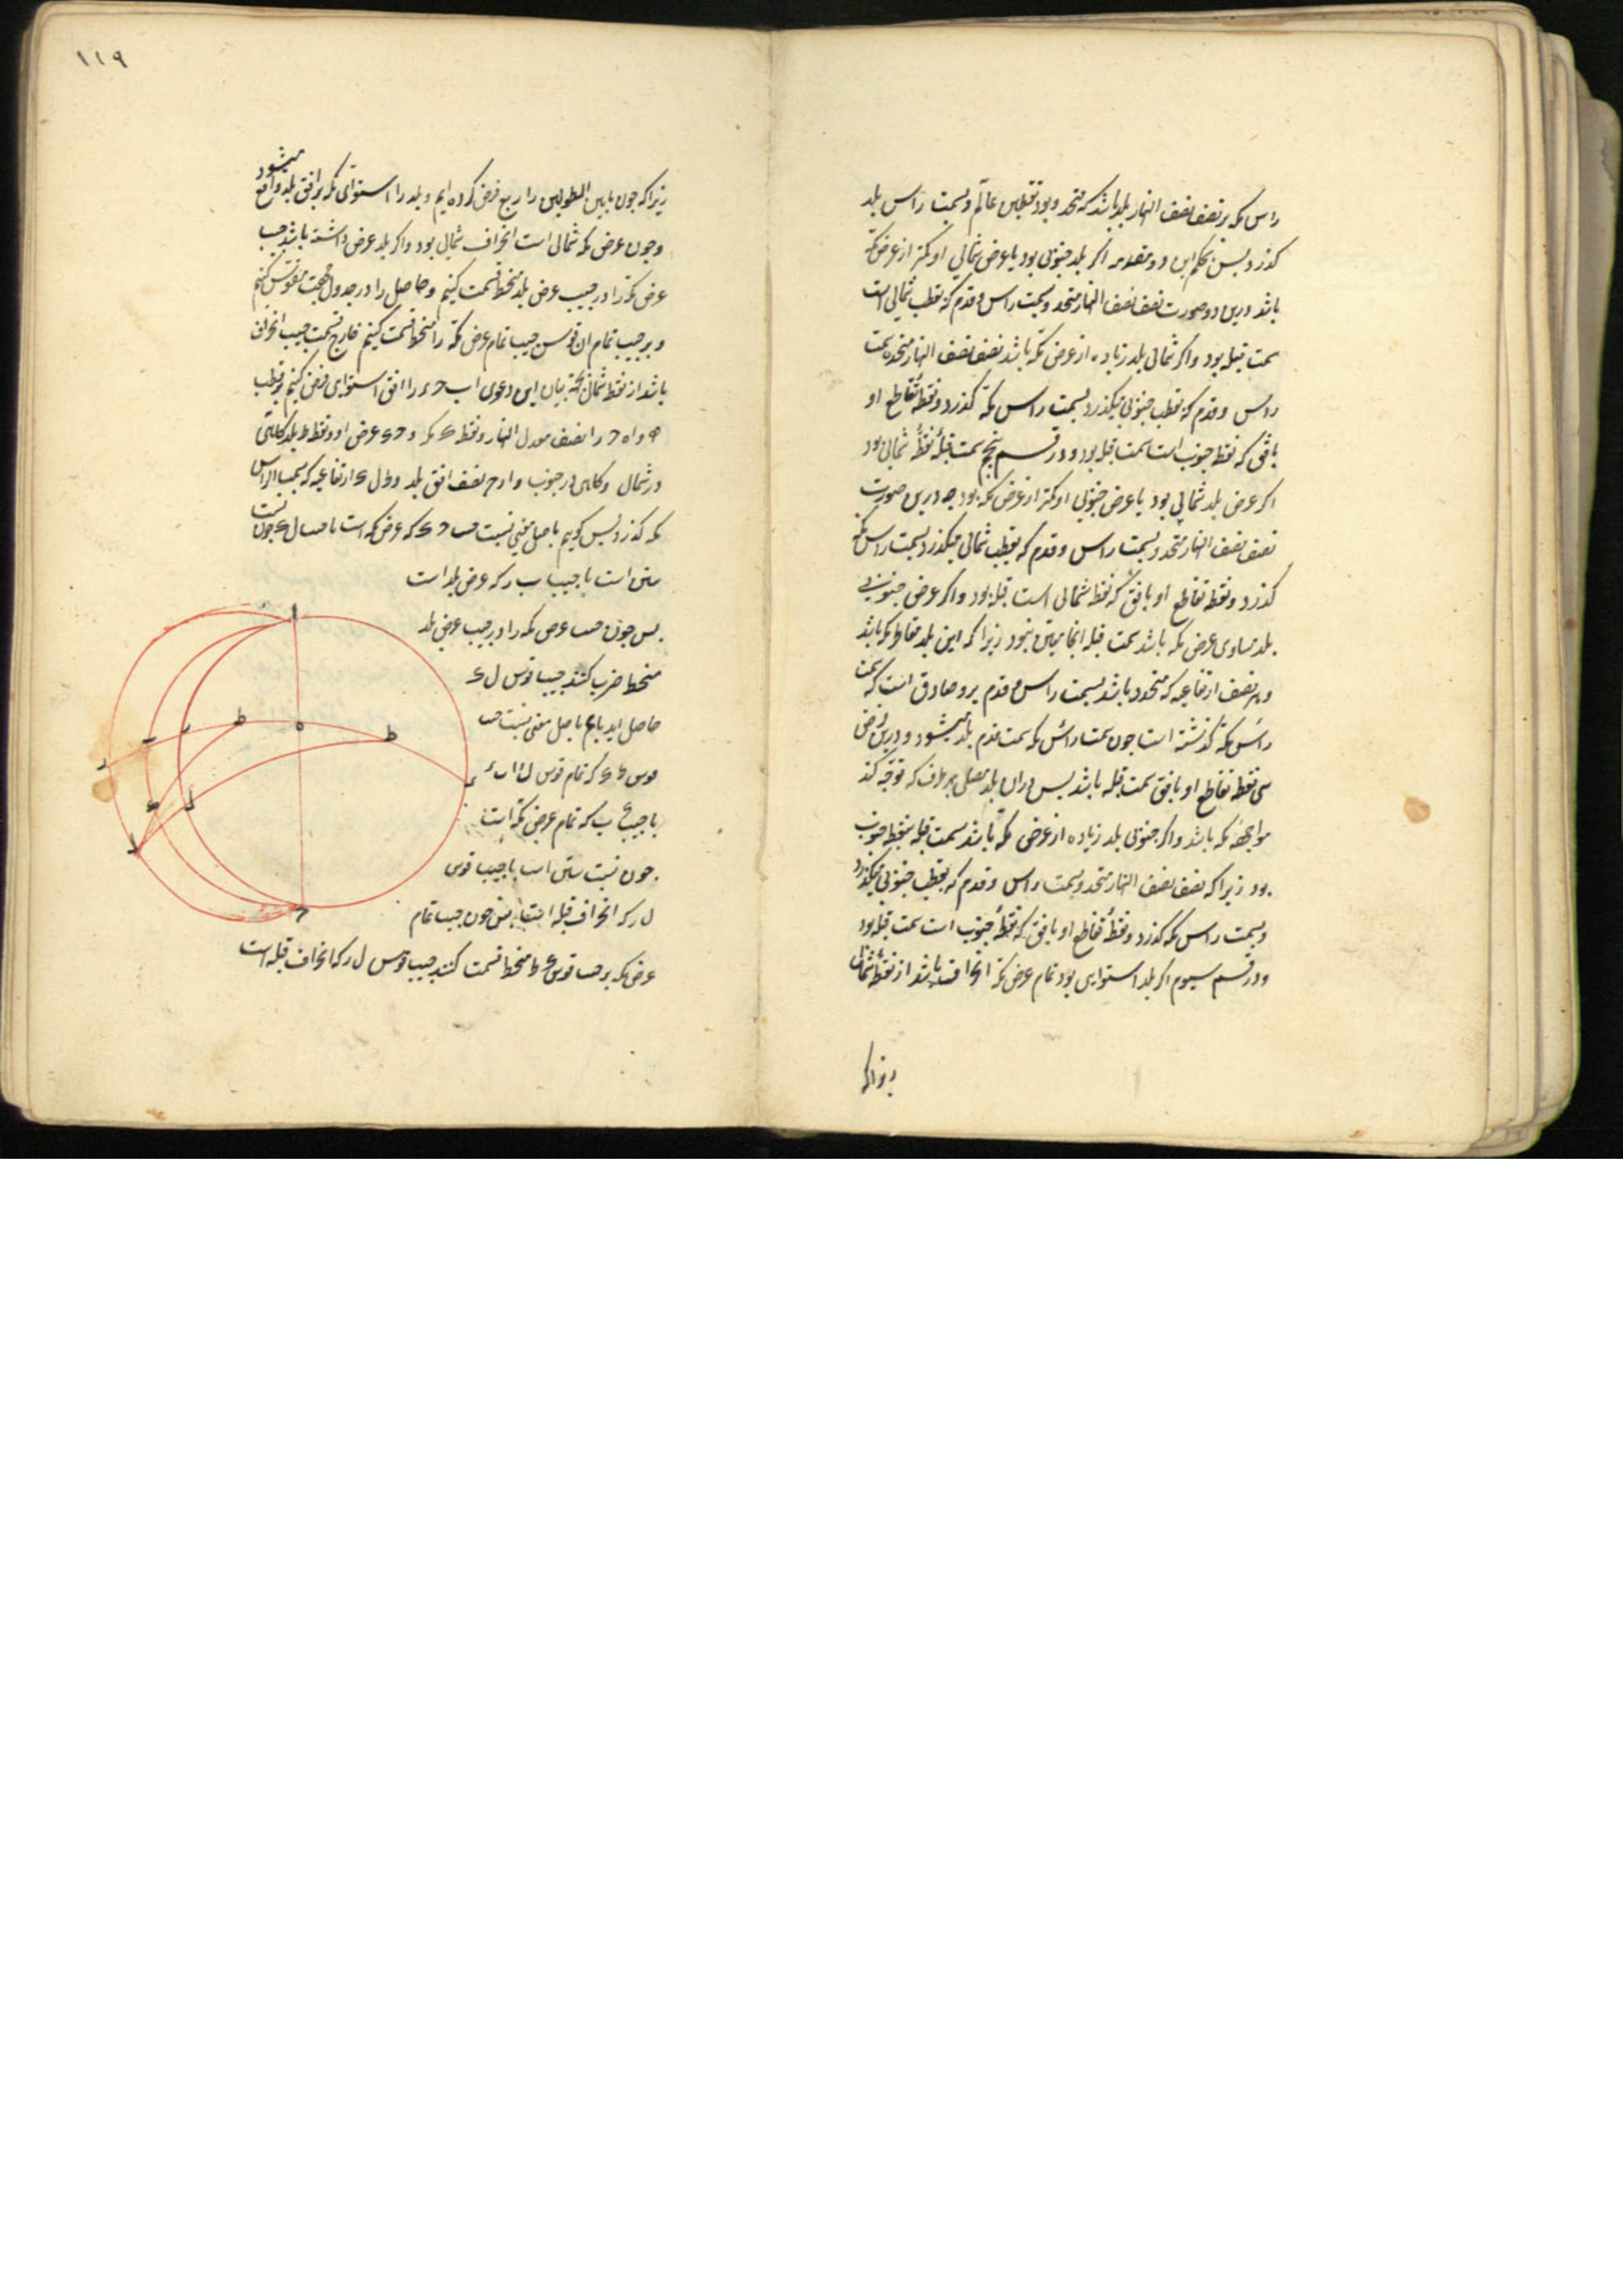 راس مکه بر نصف نصف النهار بلد باشد که متحد وبود قطبین عالم وبسمت راس بلد
کذرد پس بحکم این دو مقدمه اکر بلد جنوبی بود یا عرض شمالی او کمتر از عرض مکه
باشد درین دو صورت نصف نصف النهار متحد وبسمت راس وقدم که بقطب شمالی است
سمت قبله بود واکر شمالی بلد زیاده از عرض مکه باشد نصف نصف النهار متحده بسمت
راس وقدم که بقطب جنوبی میکذرد بسمت راس مکه کذرد ونقطه تقاطع او
بافق که نقطه جنوب است سمت قبله بود ودر قسم پنجم سمت قبله نقطه شمالی بود
اکر عرض بلد شمالی بود یا عرض جنوبی او کمتر از عرض مکه بود چه درین صورت
نصف نصف النهار متحد وبسمت راس وقدم که بقطب شمالی میکذرد بسمت راس مکه
کذرد ونقطه تقاطع او بافق که نقطه شمالی است قبله بود واکر عرض جنوبی
بلد مساوی عرض مکه باشد سمت قبله انجا متعین نبود زیرا که این بلد مقاطر مکه باشد
وهر نصف ارتفاعیه که متحدود باشد بسمت راس وقدم برو صادق است که بسمت
راس مکه کذشته است چون سمت راس مکه سمت قدم بلد میشود ودرین فرض
نقطه تقاطع او بافق سمت قبله باشد پس دران بلد مصلی بهر طرف که توجه کند
مواجهه مکه باشد واکر جنوبی بلد زیاده از عرض مکه باشد سمت قبله نقطه جنوب
بود زیرا که نصف نصف النهار متحد وبسمت راس وقدم که بقطب جنوبی میکذرد
وبسمت راس مکه کذرد ونقطه تقاطع او بافق که نقطه جنوب است سمت قبله بود
ودر قسم سیوم اکر بلد استوایی بود تمام عرض مکه انحراف باشد از نقطه شمال
زیرا که
١١٩
زیرا که چون مابین الطولین را ربع فرض کرده ایم وبلد را استوائی مکه بر افق بلد واقع میشود
وچون عرض مکه شمالی است انحراف شمالی بود واکر بلد عرض داشته باشد جیب
عرض مکه را در جیب عرض بلد منحط قسمت کنیم وحاصل را در جدول جیب مقوس کنیم
وبر جیب تمام ان قوس جیب تمام عرض مکه را منحط قسمت کنیم خارج قسمت جیب انحراف
باشد از نقطه شمال بجهة بیان این دعوی ا ب ح ء را افق استوای فرض کنیم بر قطب
ه و ا ه ح را نصف معدل النهار ونقطه ک مکه و ح ک عرض او ونقطه ط بلد کاهی
در شمال وکاهی در جنوب و ا ر ح نصف افق بلد و ط ل ک ارتفاعیه که بسمت الراس
مکه کذرد پس کویم باصل مغنی نسبت جیب ح ک که عرض مکه است با جیب ل ک چون نسبت
ستین است با جیب ب ر که عرض بلد است
پس چون جیب عرض مکه را در جیب عرض بلد
منحط ضرب کنند جیب قوس ل ک
حاصل اید باز باصل مغنی نسبت جیب
قوس ط ک که تمام قوس ل ک است
با جیب ک ب که تمام عرض مکه است
چون نسبت ستین است با جیب قوس
ل ر که انحراف قبله است پس چون جیب تمام
عرض مکه بر جیب قوس ک ط منحط قسمت کنند جیب قوس ل ر که انحراف قبله است
ا
ط
ه
ط
ر
ب
ل
ک
ء
ح